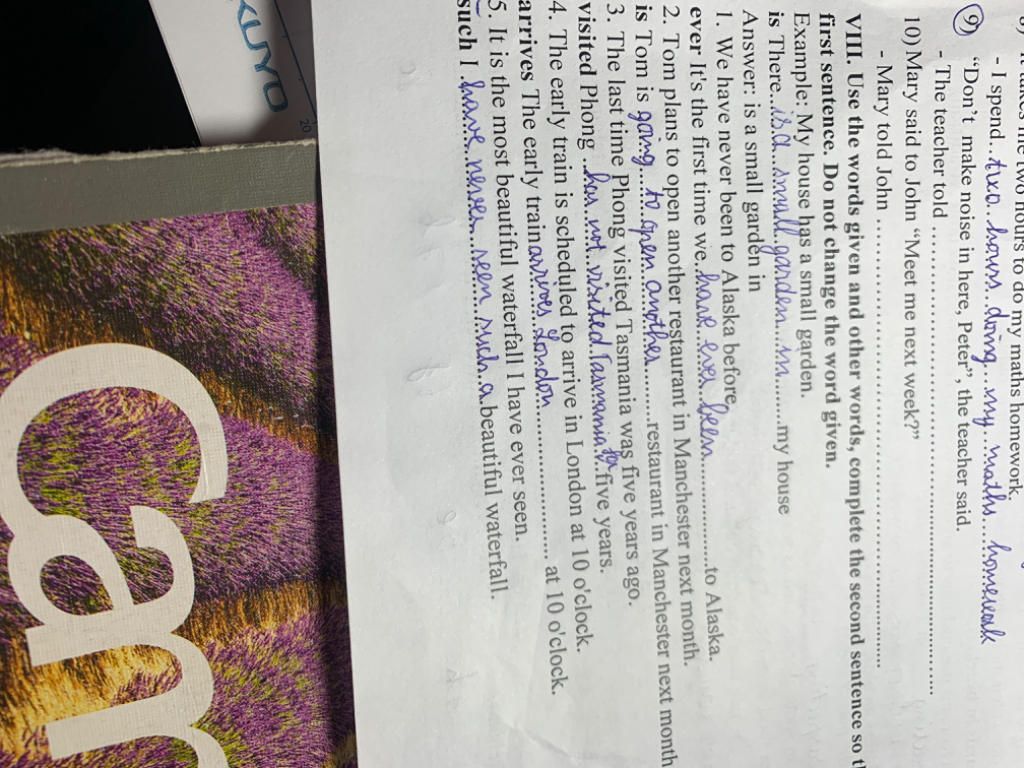 me two hours to do my maths homework.
- I spend..two..hours..doing...my..maths....homework
9) "Don't make noise in here, Peter", the teacher said.
- The teacher told ......................................................
10) Mary said to John "Meet me next week?"
- Mary told John ......................................................
VIII. Use the words given and other words, complete the second sentence so
first sentence. Do not change the word given.
Example: My house has a small garden.
is There..is a...small garden....in..........my house
Answer: is a small garden in
1. We have never been to Alaska before
ever It's the first time we..have ever been...............to Alaska.
2. Tom plans to open another restaurant in Manchester next month.
is Tom is going to open another..........restaurant in Manchester next month
3. The last time Phong visited Tasmania was five years ago.
visited Phong ..has not visited Tasmania for..five years.
4. The early train is scheduled to arrive in London at 10 o'clock.
arrives The early train arrives London..................... at 10 o'clock.
5. It is the most beautiful waterfall I have ever seen.
such I have never seen such a beautiful waterfall.
20
Cam